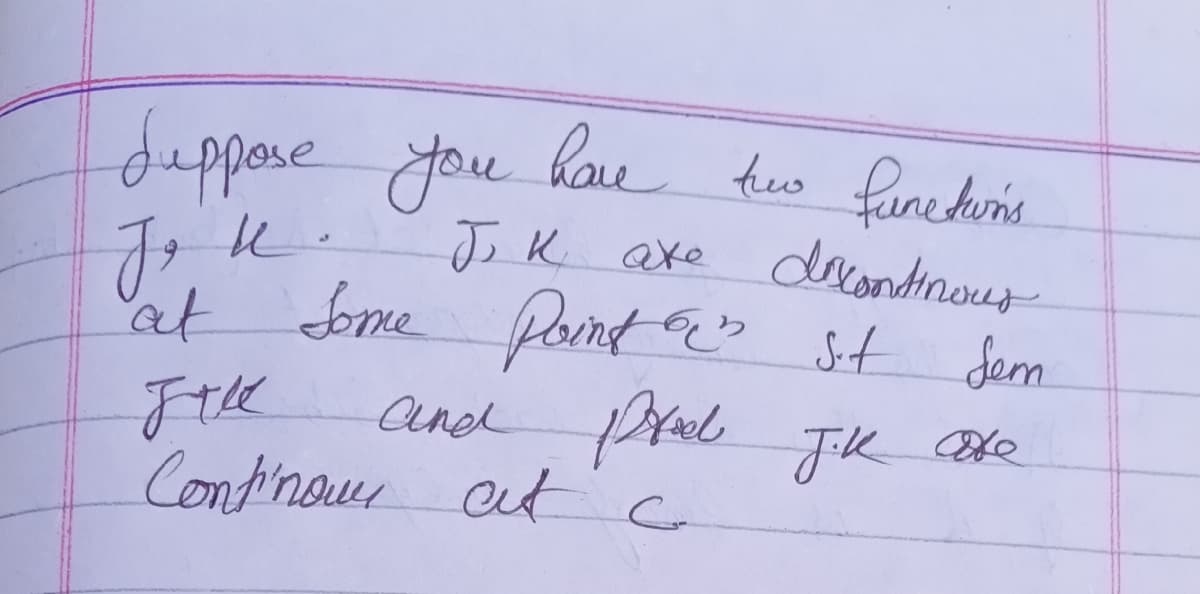 Suppose you have two functions
J, K. J, K are discontinous
at some Point "c" s.t sum
J+K and prod J.K are
Continous at c.